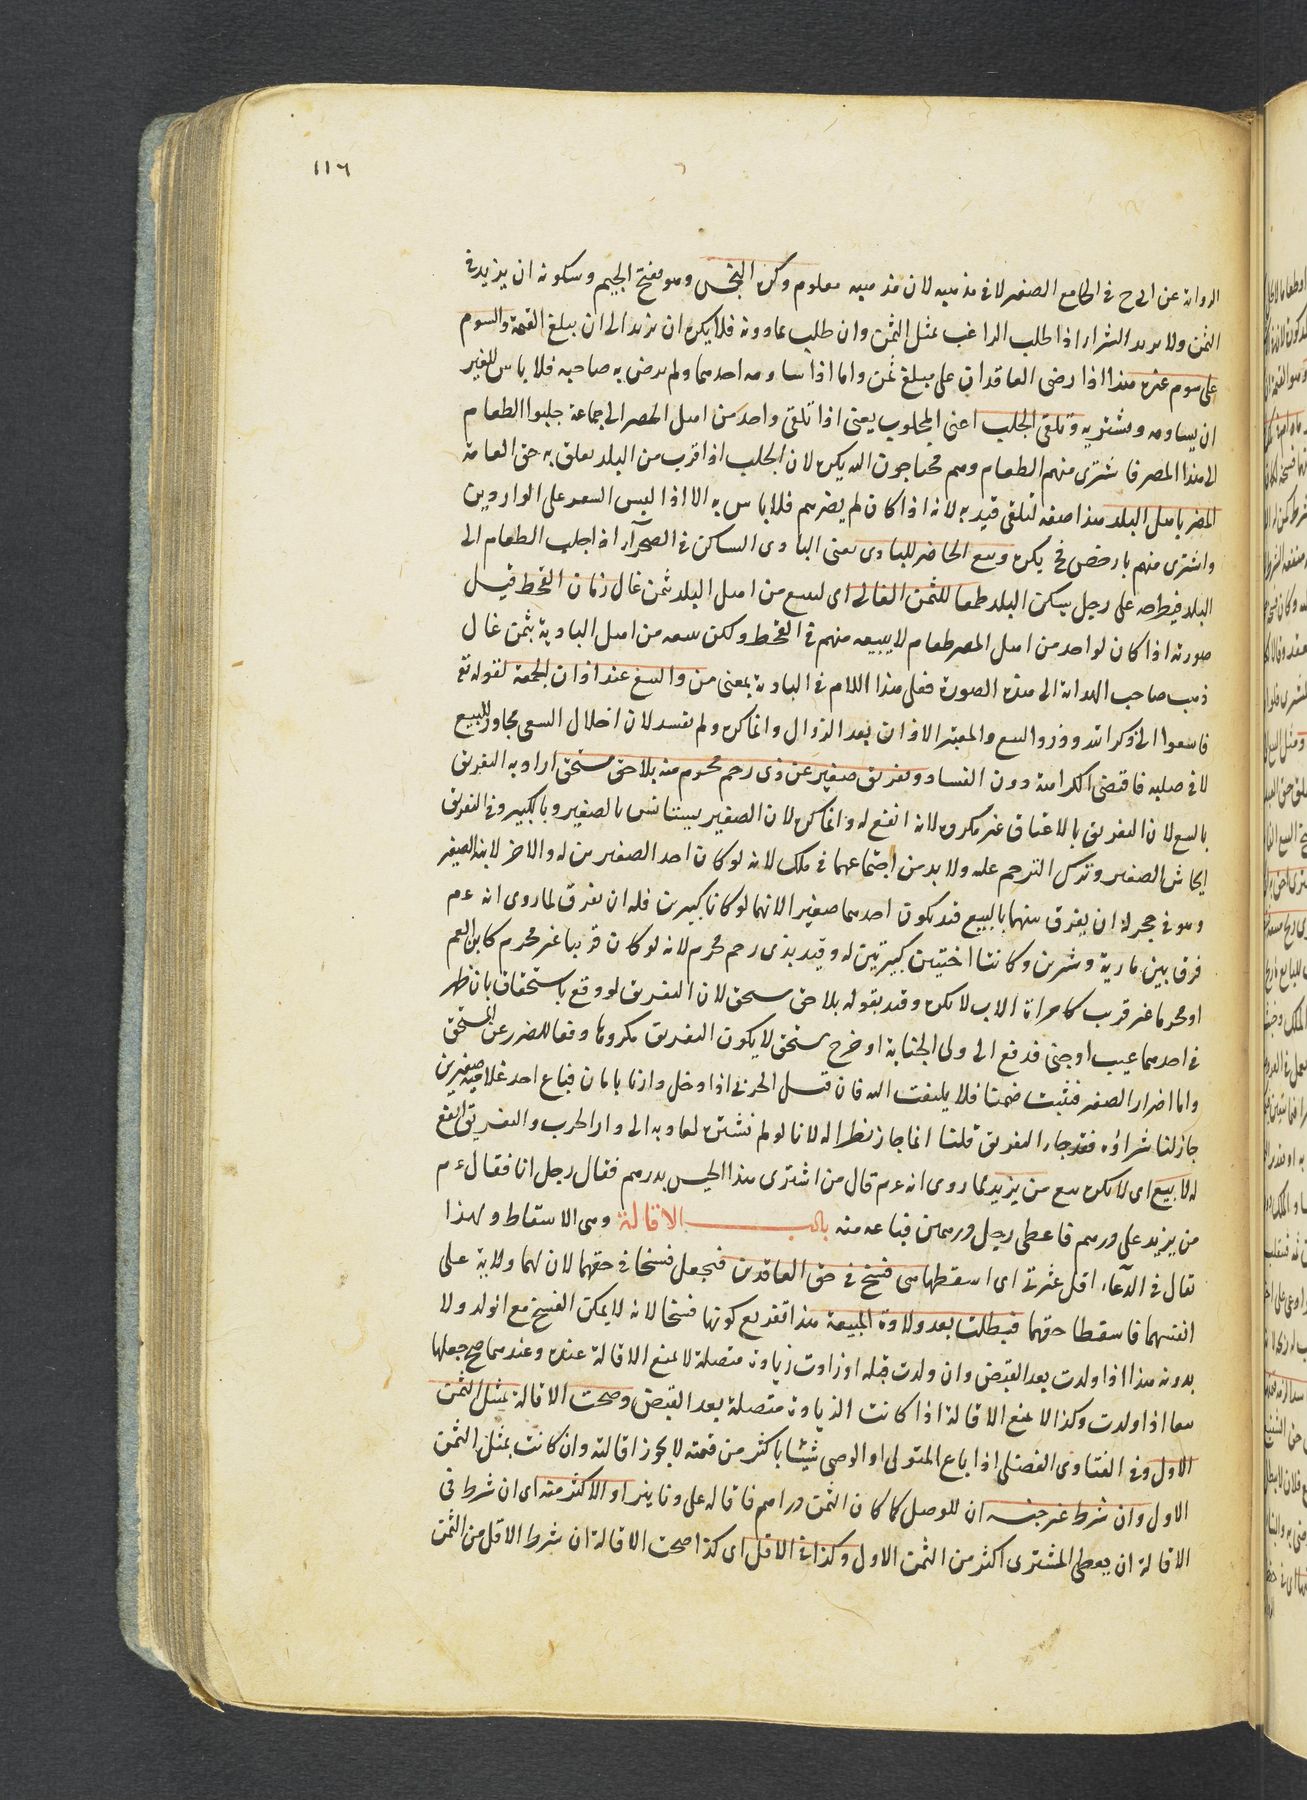 ١١٦
الرواية عن ابى ح فى الجامع الصغير لا فى مذهبه لان مذهبه معلوم وكره النجش وهو بفتح الجيم وسكونه ان يزيد فى
الثمن ولا يريد الشراء اذا طلب الراغب بمثل الثمن وان طلب بما دونه فلا يكره ان يزيد الى ان يبلغ القيمة والسوم
على سوم غيره هذا اذا رضى العاقدان على مبلغ ثمن واما اذا ساومه احدهما ولم يرض به صاحبه فلا باس للغير
ان يساومه ويشتريه وتلقى الجلب اعنى المجلوب يعنى اذا تلقى واحد من اهل المصر الى جماعة جلبوا الطعام
الى هذا المصر فاشترى منهم الطعام وهم محتاجون اليه يكره لان الجلب اذا قرب من البلد تعلق به حق العامة
المضر باهل البلد هذا صفة لتلقى قيد به لانه اذا كان لم يضرهم فلا باس به الا اذا لبس السعر على الواردين
واشترى منهم بارخص فح يكره وبيع الحاضر للبادى يعنى البادى الساكن فى الصحراء اذا جلب الطعام الى
البلد فيطرحه على رجل يسكن البلد طعما للثمن الغالى اى ليبيع من اهل البلد بثمن غال زمان القحط قيل
صورته اذا كان لواحد من اهل المصر طعام لا يبيعه منهم فى القحط ولكن يبيعه من اهل البادية بثمن غال
ذهب صاحب الهداية الى هذه الصورة فعلى هذا اللام فى البادية بمعنى من والبيع عند اذان الجمعة لقوله تع
فاسعوا الى ذكر الله وذروا البيع والمعتبر الاذان بعد الزوال وانما كره ولم يفسد لان اخلال السعى مجاور للبيع
لا فى صلبه فاقتضى الكراهة دون الفساد وتفريق صغير عن ذى رحم محرم منه بلا حق مستحق اراد به التفريق
بالبيع لان التفريق بالاعتاق غير مكروه لانه انفع له وانما كره لان الصغير يستانس بالصغير وبالكبير وفى التفريق
ايحاش الصغير وترك الترحم عليه ولا بد من اجتماعهما فى ملك لانه لو كان احد الصغيرين له والاخر لابنه الصغير
وهو فى حجره له ان يفرق بينهما بالبيع قيد بكون احدهما صغيرا لانهما لو كانا كبيرين فله ان يفرق لما روى انه عم
فرق بين مارية وشيرين وكانتا اختين كبيرتين له وقيد بذى رحم محرم لانه لو كان قريبا غير محرم كابن العم
او محرما غير قريب كامراة الاب لا يكره وقيد بقوله بلا حق مستحق لان التفريق لو وقع باستحقاق بان ظهر
فى احدهما عيب او جنى فدفع الى ولى الجناية او خرج مستحق لا يكون التفريق مكروها دفعا للضرر عن المستحق
واما اضرار الصغير فتثبت ضمنا فلا يلتفت اليه فان قيل الحربى اذا دخل دارنا بامان فباع احد غلاميه صغيرين
جاز لنا شراؤه فقد جاء التفريق قلنا انما جاز نظرا له لانا لو لم نشتره لعاد به الى دار الحرب والتفريق انفع
له لا بيع اى لا يكره بيع من يزيد لما روى انه عم قال من اشترى هذا الحلس بدرهم فقال رجل انا فقال عم
من يزيد على درهم فاعطى رجل درهمين فباعه منه باب الاقالة وهى الاسقاط ولهذا
يقال فى الدعاء اقل عثرتى اى اسقطها هى فسخ فى حق العاقدين فتجعل فسخا فى حقهما لان لهما ولاية على
انفسهما فاسقطا حقهما فبطلت بعد ولادة المبيعة هذا تفريع كونها فسخا لانه لا يمكن الفسخ مع الولد ولا
بدونه هذا اذا ولدت بعد القبض وان ولدت قبله او زادت زيادة متصلة لا يمنع الاقالة عنده وعندهما صح جعلها
بيعا اذا ولدت وكذا لا يمنع الاقالة اذا كانت الزيادة متصلة بعد القبض وصحت الاقالة بمثل الثمن
الاول وفى الفتاوى الفضلى اذا باع المتولى او الوصى شيئا باكثر من قيمته لا يجوز اقالته وان كانت بمثل الثمن
الاول وان شرط غير جنسه ان للوصل كما كان الثمن دراهم فاقاله على دنانير او الاكثر منه اى ان شرط فى
الاقالة ان يعطى المشترى اكثر من الثمن الاول وكذا فى الاقل اى كذا صحت الاقالة ان شرط الاقل من الثمن